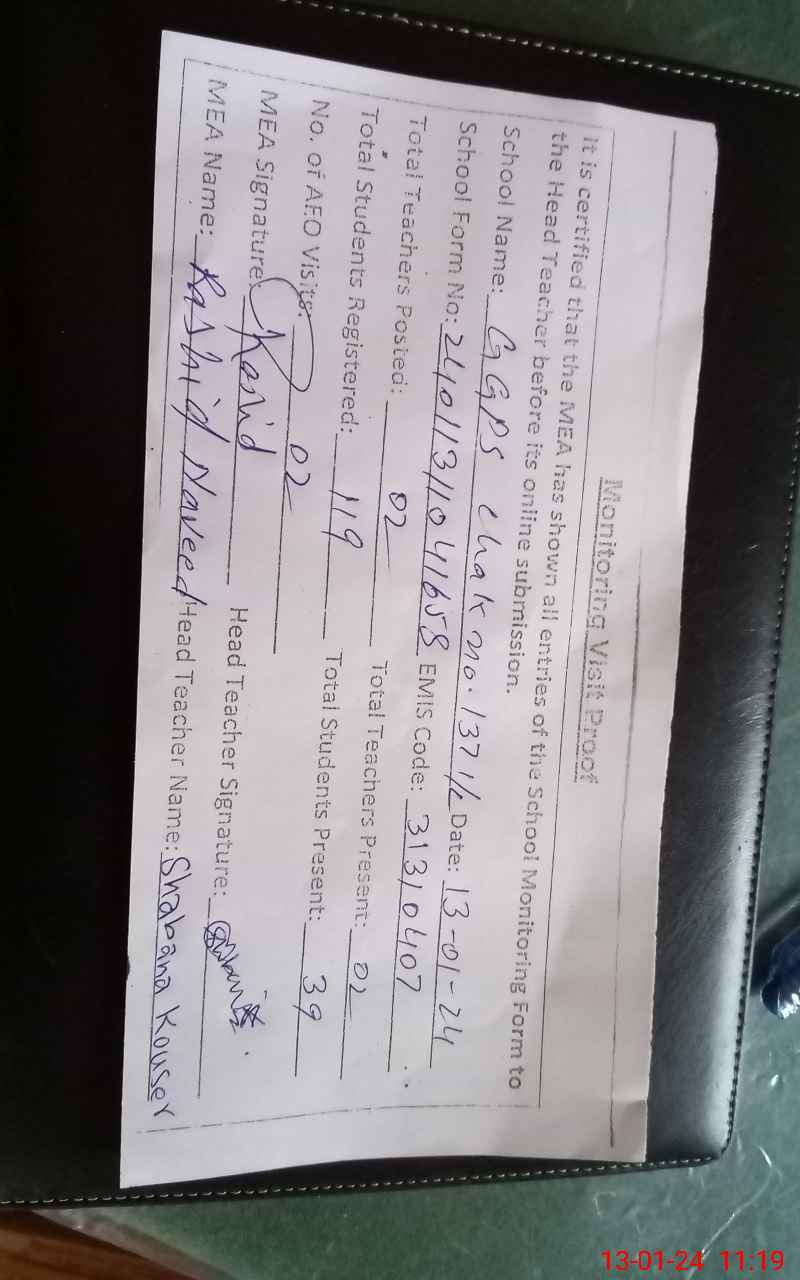 Monitoring Visit Proof
It is certified that the MEA has shown all entries of the School Monitoring Form to
the Head Teacher before its online submission.
School Name: GGPS chak no. 137 1/L Date: 13-01-24
School Form No: 24011311041658 EMIS Code: 31310407
Total Teachers Posted: 02 Total Teachers Present: 02
Total Students Registered: 119 Total Students Present: 39
No. of AEO Visits: 02
MEA Signature: Rashid Head Teacher Signature:
MEA Name: Rashid Naveed Head Teacher Name: Shabana Kouser
13-01-24 11:19